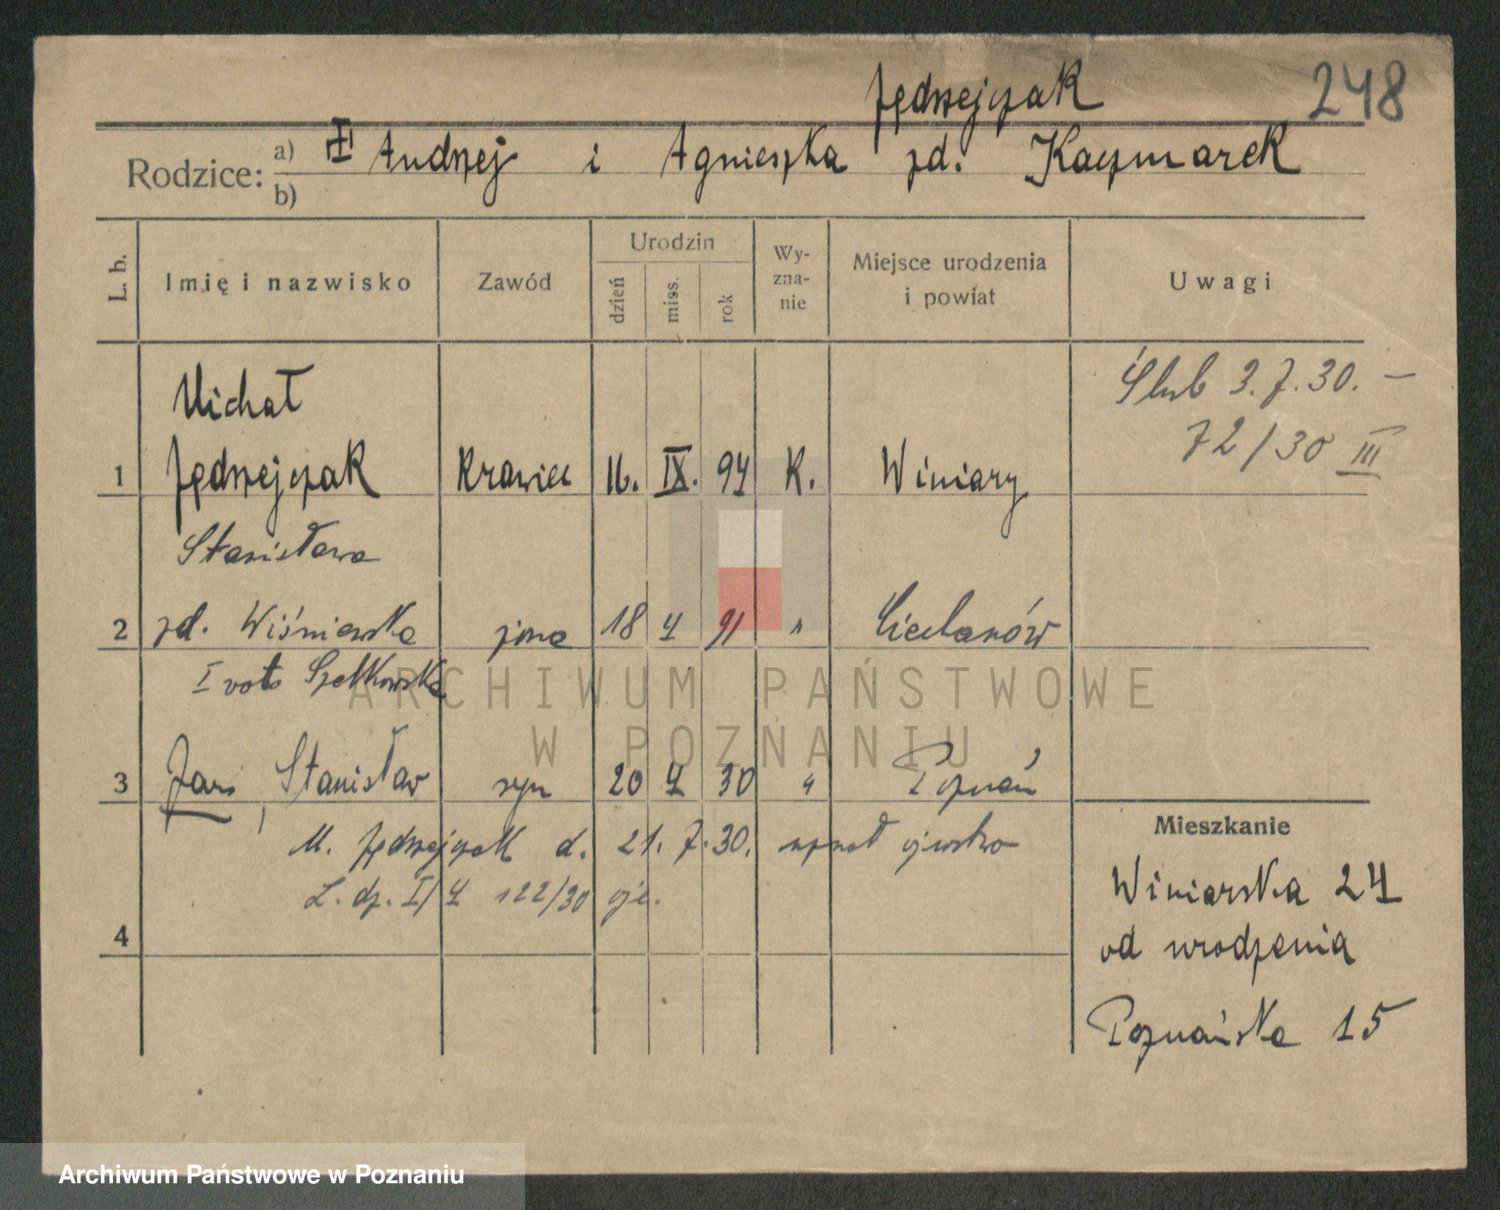 Jędrzejczak 248
Rodzice: a) I Andrzej i Agnieszka zd. Kaczmarek
b)
L. b. Imię i nazwisko Zawód Urodzin dzień mies. rok Wy-zna-nie Miejsce urodzenia i powiat Uwagi
Ślub 3.7.30. –
72/30 III
Michał
1 Jędrzejczak Krawiec 16. IX. 94 K. Winiary
Stanisława
2 zd. Wiśniewska żona 18 4 91 " Ciechanów
I voto
3 Jan, Stanisław syn 20 4 30 " Poznań
Mieszkanie
M. Jędrzejczak d. 21. 7. 30. uznał ojcostwo
L. dz. I/4 122/30
4
Winiarska 24
od urodzenia
Poznańska 15
ARCHIWUM PAŃSTWOWE
W POZNANIU
Archiwum Państwowe w Poznaniu